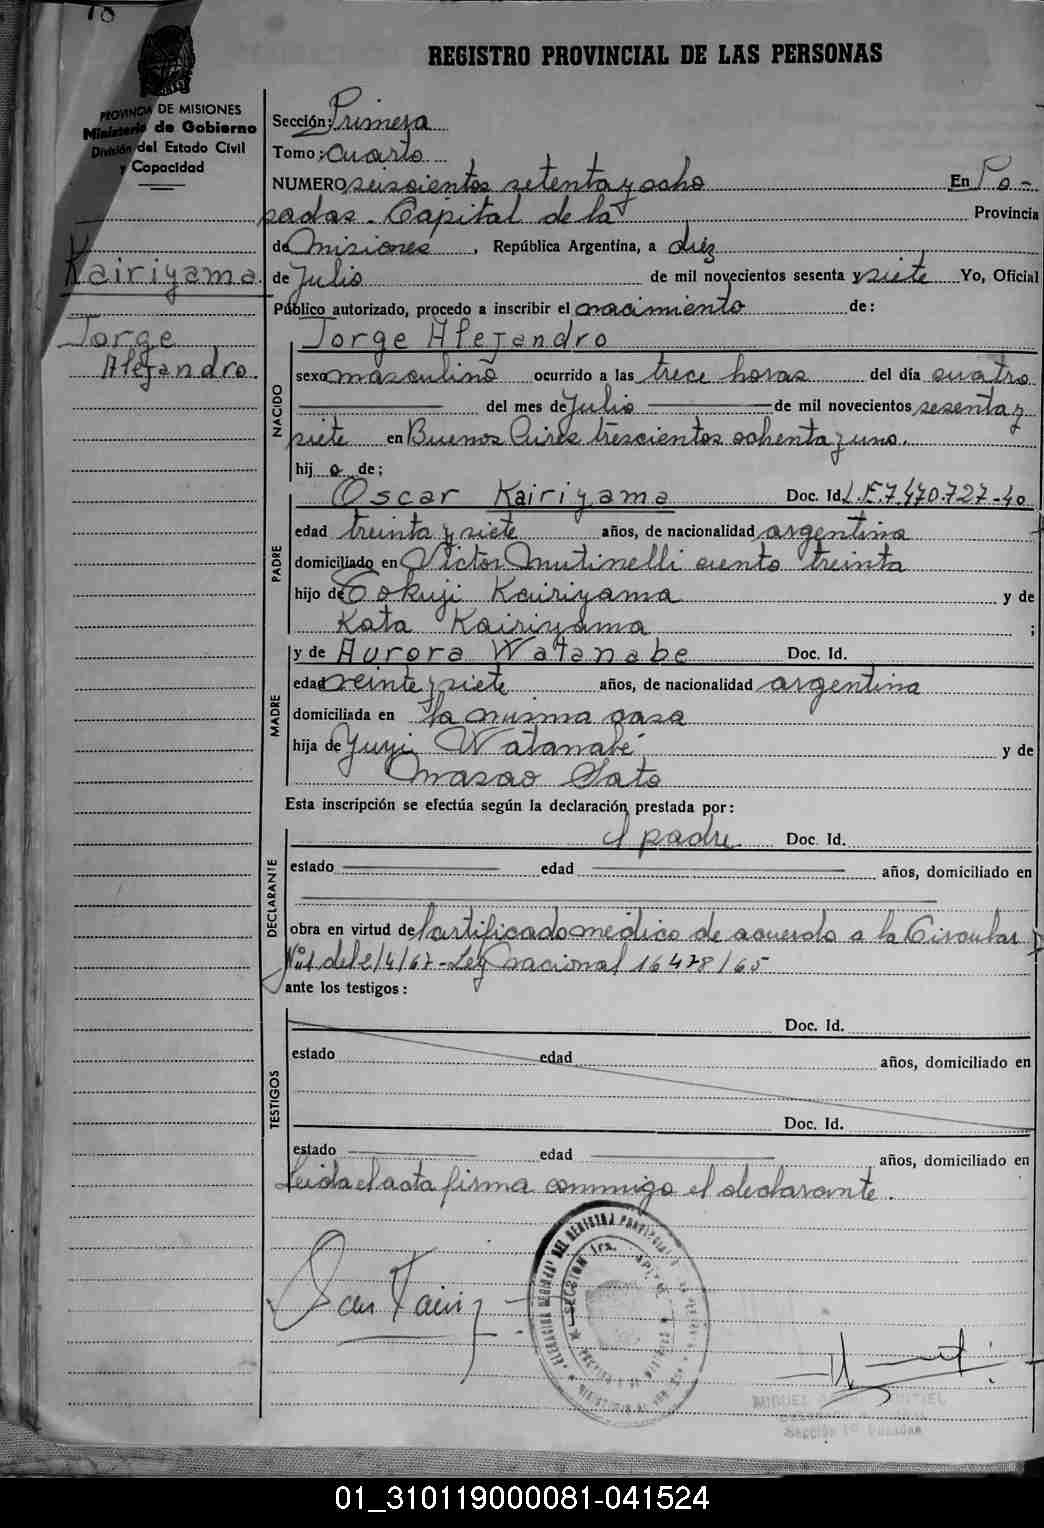 REGISTRO PROVINCIAL DE LAS PERSONAS
PROVINCIA DE MISIONES
Ministerio de Gobierno
División del Estado Civil
y Capacidad
Kairiyama
Jorge
Alejandro.
Sección: Primera
Tomo: Cuarto
NUMERO seiscientos setenta y ocho En Po-
sadas. Capital de la Provincia
de Misiones, República Argentina, a diez
de Julio de mil novecientos sesenta y siete Yo, Oficial
Público autorizado, procedo a inscribir el nacimiento de:
NACIDO
Jorge Alejandro
sexo masculino ocurrido a las trece horas del día cuatro
del mes de Julio de mil novecientos sesenta y
siete en Buenos Aires trescientos ochenta y uno.
hij o de;
PADRE
Oscar Kairiyama Doc. Id. L.E.7.470.727-40
edad treinta y siete años, de nacionalidad argentina
domiciliado en Victor Mutinelli ciento treinta
hijo de Tokuji Kairiyama y de
Kata Kairiyama ;
MADRE
y de Aurora Watanabe Doc. Id.
edad veinte y siete años, de nacionalidad argentina
domiciliada en la misma casa
hija de Yuyi Watanabe y de
Masao Sato
Esta inscripción se efectúa según la declaración prestada por:
DECLARANTE
el padre Doc. Id.
estado edad años, domiciliado en
obra en virtud de Certificado médico de acuerdo a la Circular
Nº1 del 2/4/67-Ley nacional 16478/65
ante los testigos:
TESTIGOS
Doc. Id.
estado edad años, domiciliado en
Doc. Id.
estado edad años, domiciliado en
Leida el acta firma conmigo el declarante.
SECCION 1ra.
01_310119000081-041524